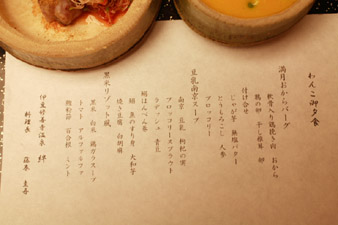 わんこ御夕食
満月おからバーグ
軟骨入り鶏挽き肉 おから
鶏の卵 干し椎茸 卵
付け合せ
じゃが芋 無塩バター
とうもろこし 人参
ブロッコリー
豆乳南京スープ
南京 豆乳 枸杞の実
ブロッコリースプラウト
ラディッシュ 青豆
鯛はんぺん巻
鯛 魚のすり身 大和芋
焼き豆腐 白胡麻
黒米リゾット風
黒米 白米 鶏ガラスープ
トマト アルファルファ
鰹粉節 百合根 ミント
伊豆修善寺温泉 絆
料理長 藤本 圭吾